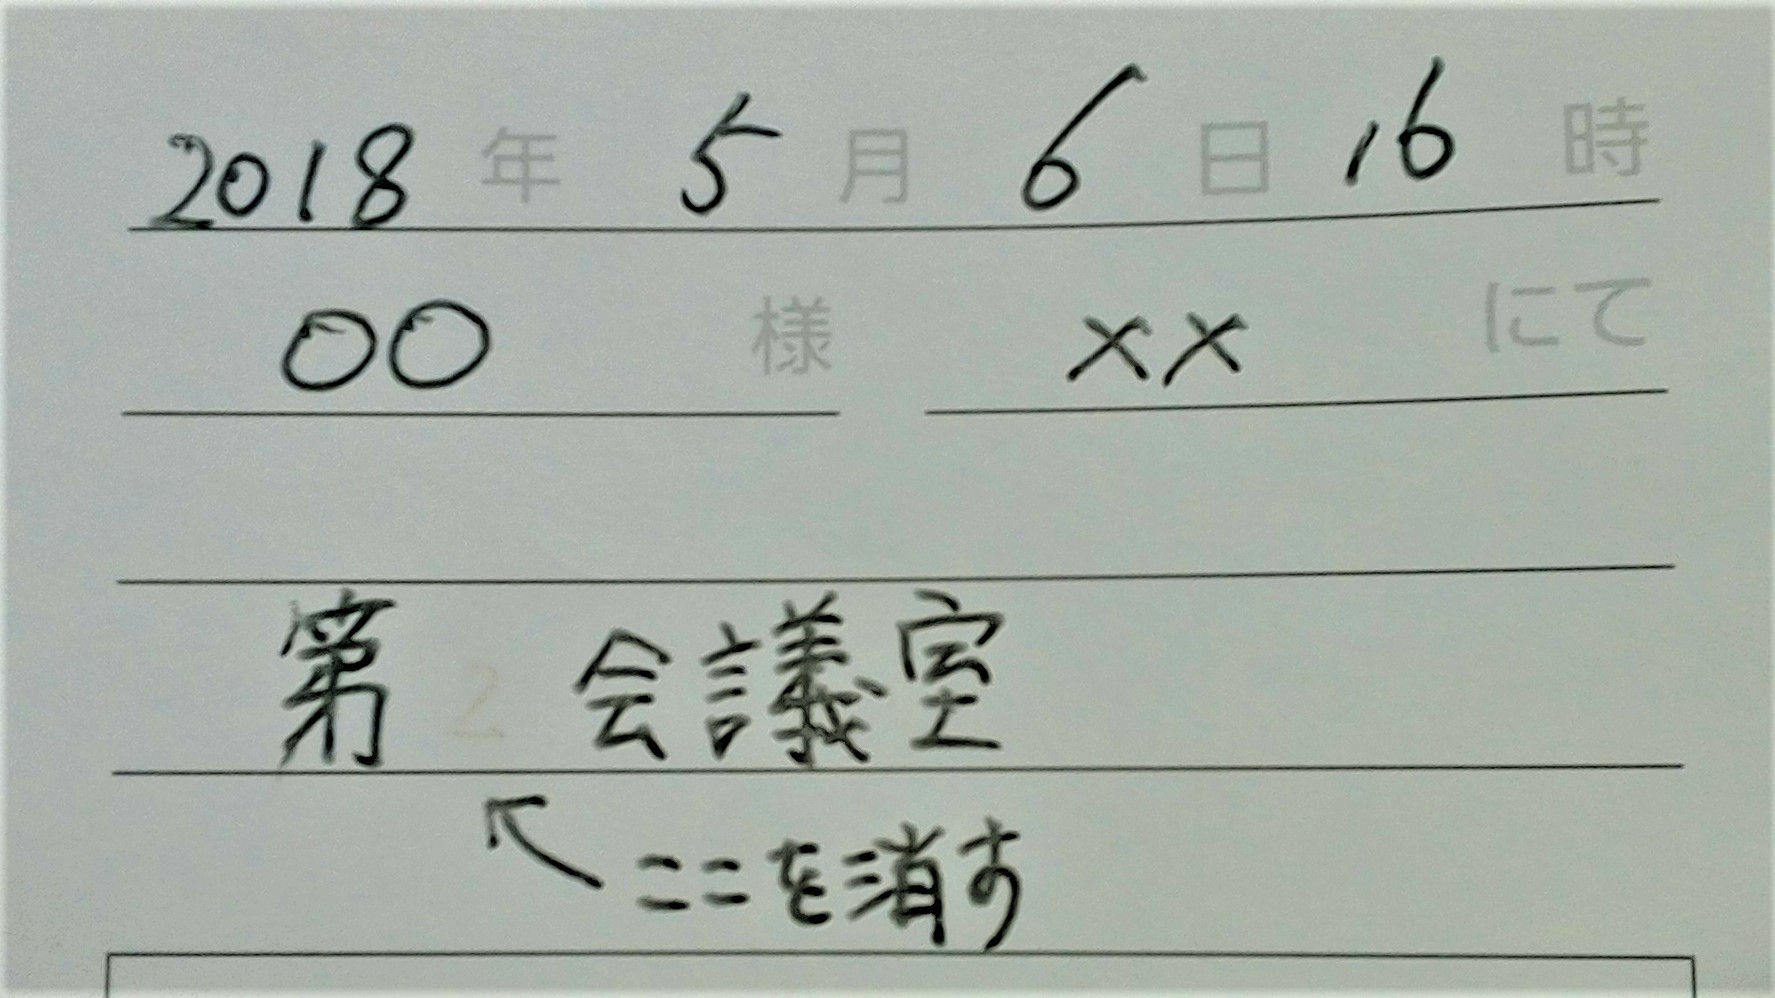 2018 年 5 月 6 日 16 時
○○ 様 ×× にて
第 2 会議室
ここを消す